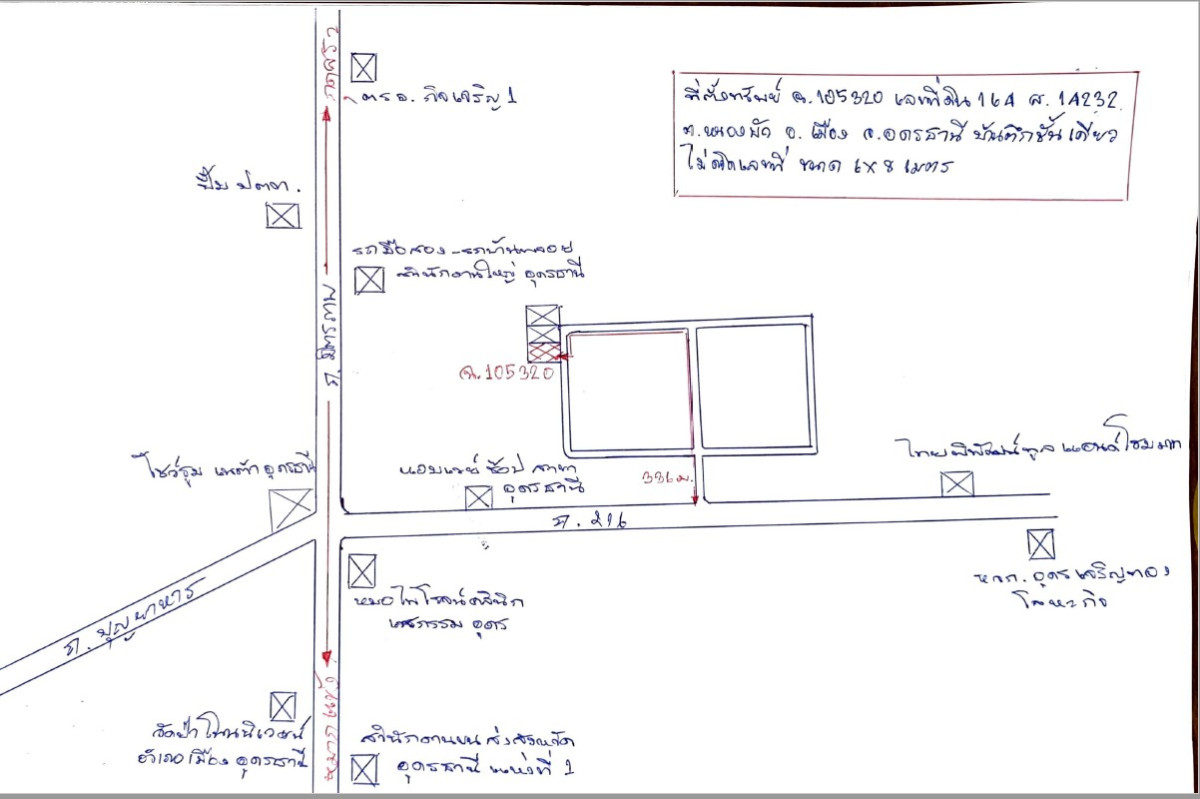 ที่ตั้งทรัพย์ ฉ.105320 เลขที่ดิน 164 ส. 14232
ต.หนองบัว อ. เมือง จ.อุดรธานี บ้านตึกชั้นเดียว
ไม่ติดเลขที่ ขนาด 6x8 เมตร
กุดสระ
ตรอ. กิจเจริญ 1
ปั๊ม ปตท.
รถมือสอง - รถบ้านพลอย
สำนักงานใหญ่ อุดรธานี
ถ. มิตรภาพ
ฉ.105320
โชว์รูม เนต้า อุดรธานี
ช้อป สาขา
อุดรธานี
336 ม.
ไทยพิพัฒน์ทูล แอนด์ โฮมมาท
ถ. 216
หจก. อุดรเจริญทอง
โลหะกิจ
หมอไพโรจน์คลินิก
เวชกรรม อุดร
ถ. บุญยาหาร
หมากแข้ง
วัดป่าโนนนิเวศน์
อำเภอเมือง อุดรธานี
สำนักงานขนส่งจังหวัด
อุดรธานี แห่งที่ 1